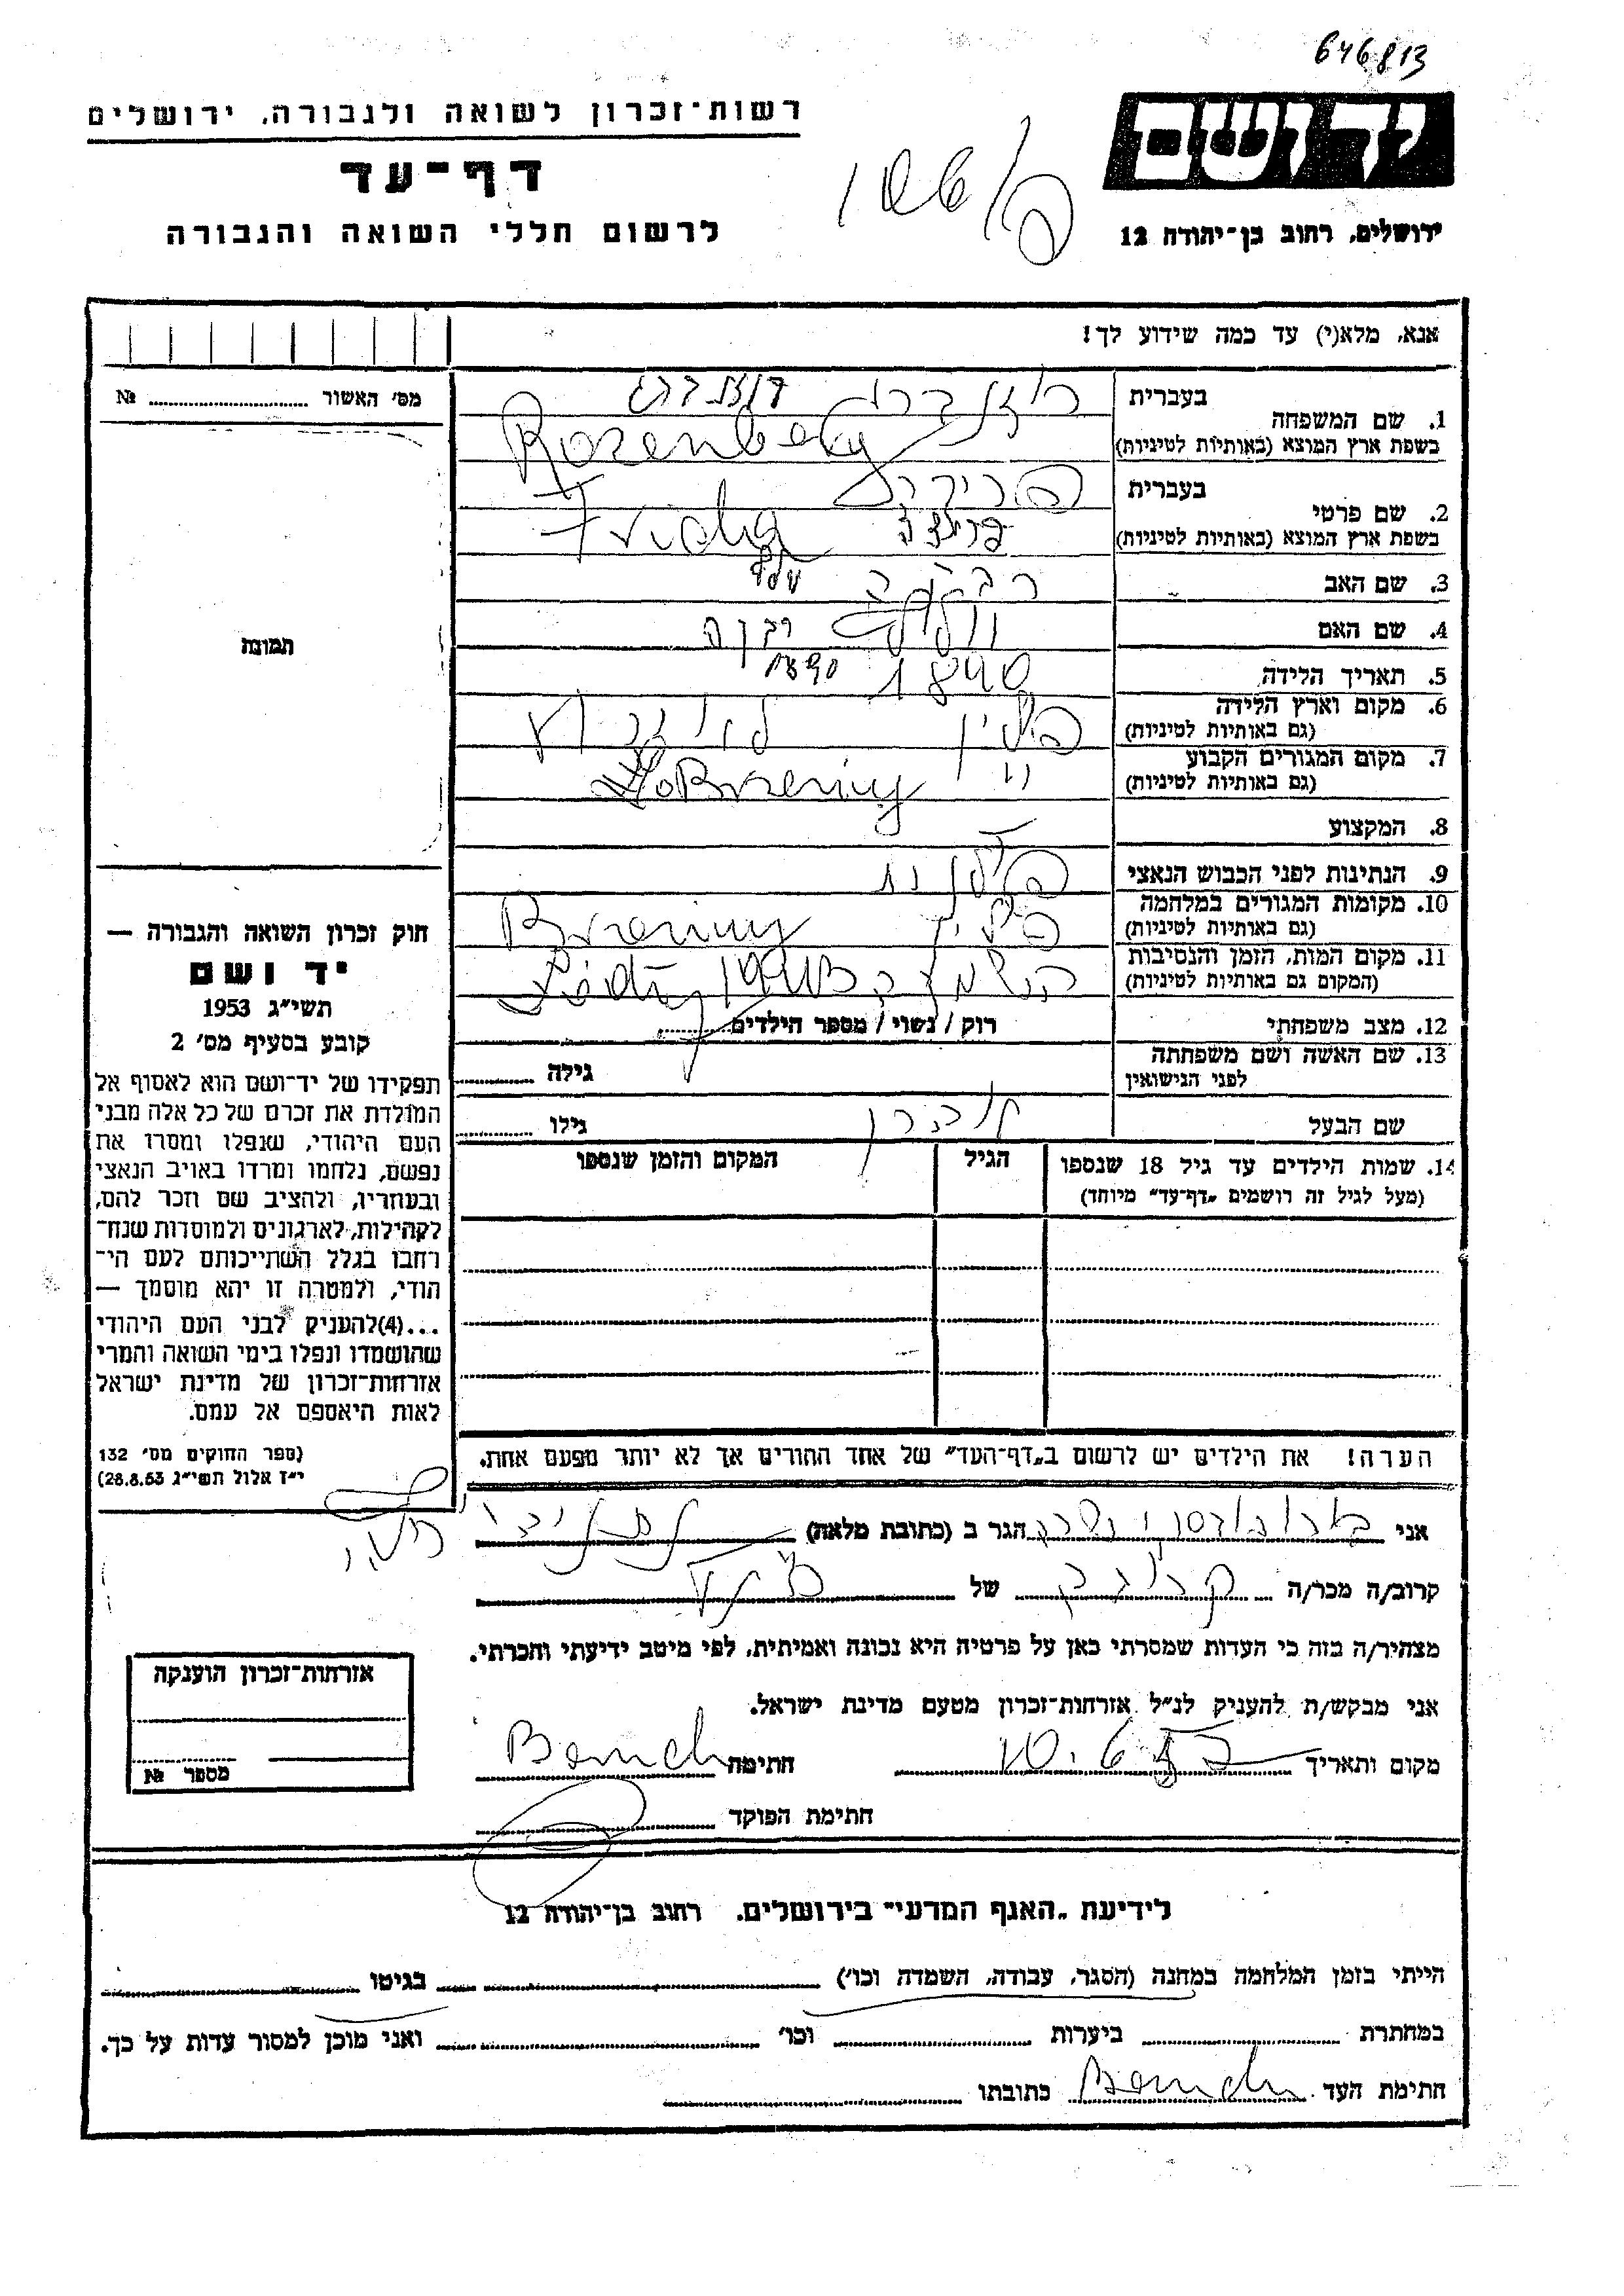 646813
רשות־זכרון לשואה ולגבורה, ירושלים
יד ושם
דף־עד
לרשום חללי השואה והגבורה
ירושלים, רחוב בן־יהודה 12
אנא, מלא(י) עד כמה שידוע לך!
מס' האשור № 
1. שם המשפחה
בעברית רוזנברג רוזנברג
בשפת ארץ המוצא (באותיות לטיניות) Rozenberg
2. שם פרטי
בעברית פרידה
בשפת ארץ המוצא (באותיות לטיניות) Frida
3. שם האב
4. שם האם רבקה
5. תאריך הלידה 1890 1890
6. מקום וארץ הלידה פולין
(גם באותיות לטיניות)
7. מקום המגורים הקבוע
(גם באותיות לטיניות) Brzeziny
8. המקצוע
9. הנתינות לפני הכבוש הנאצי פולנית
10. מקומות המגורים במלחמה פולין Brzeziny
(גם באותיות לטיניות)
11. מקום המות, הזמן והנסיבות
(המקום גם באותיות לטיניות)
12. מצב משפחתי רוק / נשוי / מספר הילדים
13. שם האשה ושם משפחתה
לפני הנישואין גילה
שם הבעל גילו
14. שמות הילדים עד גיל 18 שנספו הגיל המקום והזמן שנספו
(מעל לגיל זה רושמים „דף־עד" מיוחד)
הערה! את הילדים יש לרשום ב„דף־העד" של אחד ההורים אך לא יותר מפעם אחת.
תמונה
חוק זכרון השואה והגבורה —
יד ושם
תשי"ג 1953
קובע בסעיף מס' 2
תפקידו של יד־ושם הוא לאסוף אל
המולדת את זכרם של כל אלה מבני
העם היהודי, שנפלו ומסרו את
נפשם, נלחמו ומרדו באויב הנאצי
ובעוזריו, ולהציב שם וזכר להם,
לקהילות, לארגונים ולמוסדות שנח־
רבו בגלל השתייכותם לעם הי־
הודי, ולמטרה זו יהא מוסמך —
...(4)להעניק לבני העם היהודי
שהושמדו ונפלו בימי השואה והמרי
אזרחות־זכרון של מדינת ישראל
לאות היאספם אל עמם.
(ספר החוקים מס' 132
י"ז אלול תשי"ג 28.8.53)
אני הגר ב (כתובת מלאה)
קרוב/ה מכר/ה קרובה של
מצהיר/ה בזה כי העדות שמסרתי כאן על פרטיה היא נכונה ואמיתית, לפי מיטב ידיעתי והכרתי.
אני מבקש/ת להעניק לנ"ל אזרחות־זכרון מטעם מדינת ישראל.
מקום ותאריך חתימה
חתימת הפוקד
אזרחות־זכרון הוענקה
מספר №
לידיעת „האגף המדעי" בירושלים, רחוב בן־יהודה 12
הייתי בזמן המלחמה במחנה (הסגר, עבודה, השמדה וכו') בגיטו
במחתרת ביערות וכו' ואני מוכן למסור עדות על כך.
חתימת העד כתובתו